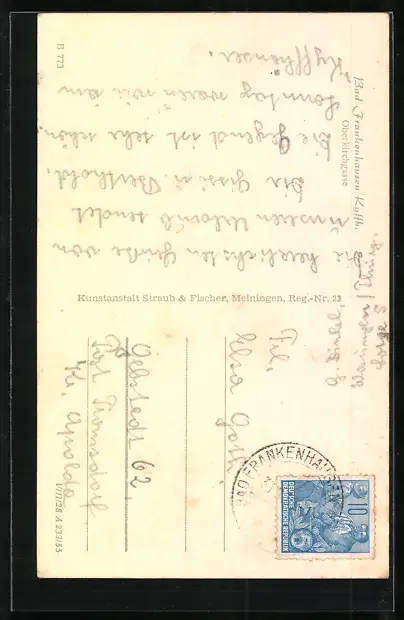 Bad Frankenhausen/Kyffh.
Oberkirchgasse
Die herzlichsten Grüße von
unseren Urlaub sendet
Die Gissi u. Berthold.
Die Gegend ist sehr schön.
Sonntag waren wir am
Kyffhäuser.
B 773
Kunstanstalt Straub & Fischer, Meiningen, Reg.-Nr. 23
BAD FRANKENHAUSEN
DEUTSCHE
DEMOKRATISCHE REPUBLIK
10
Frl.
Elsa
Oelbstedt 62
Post Promsdorf
Kr. Apolda
VIII/28 A 233/55